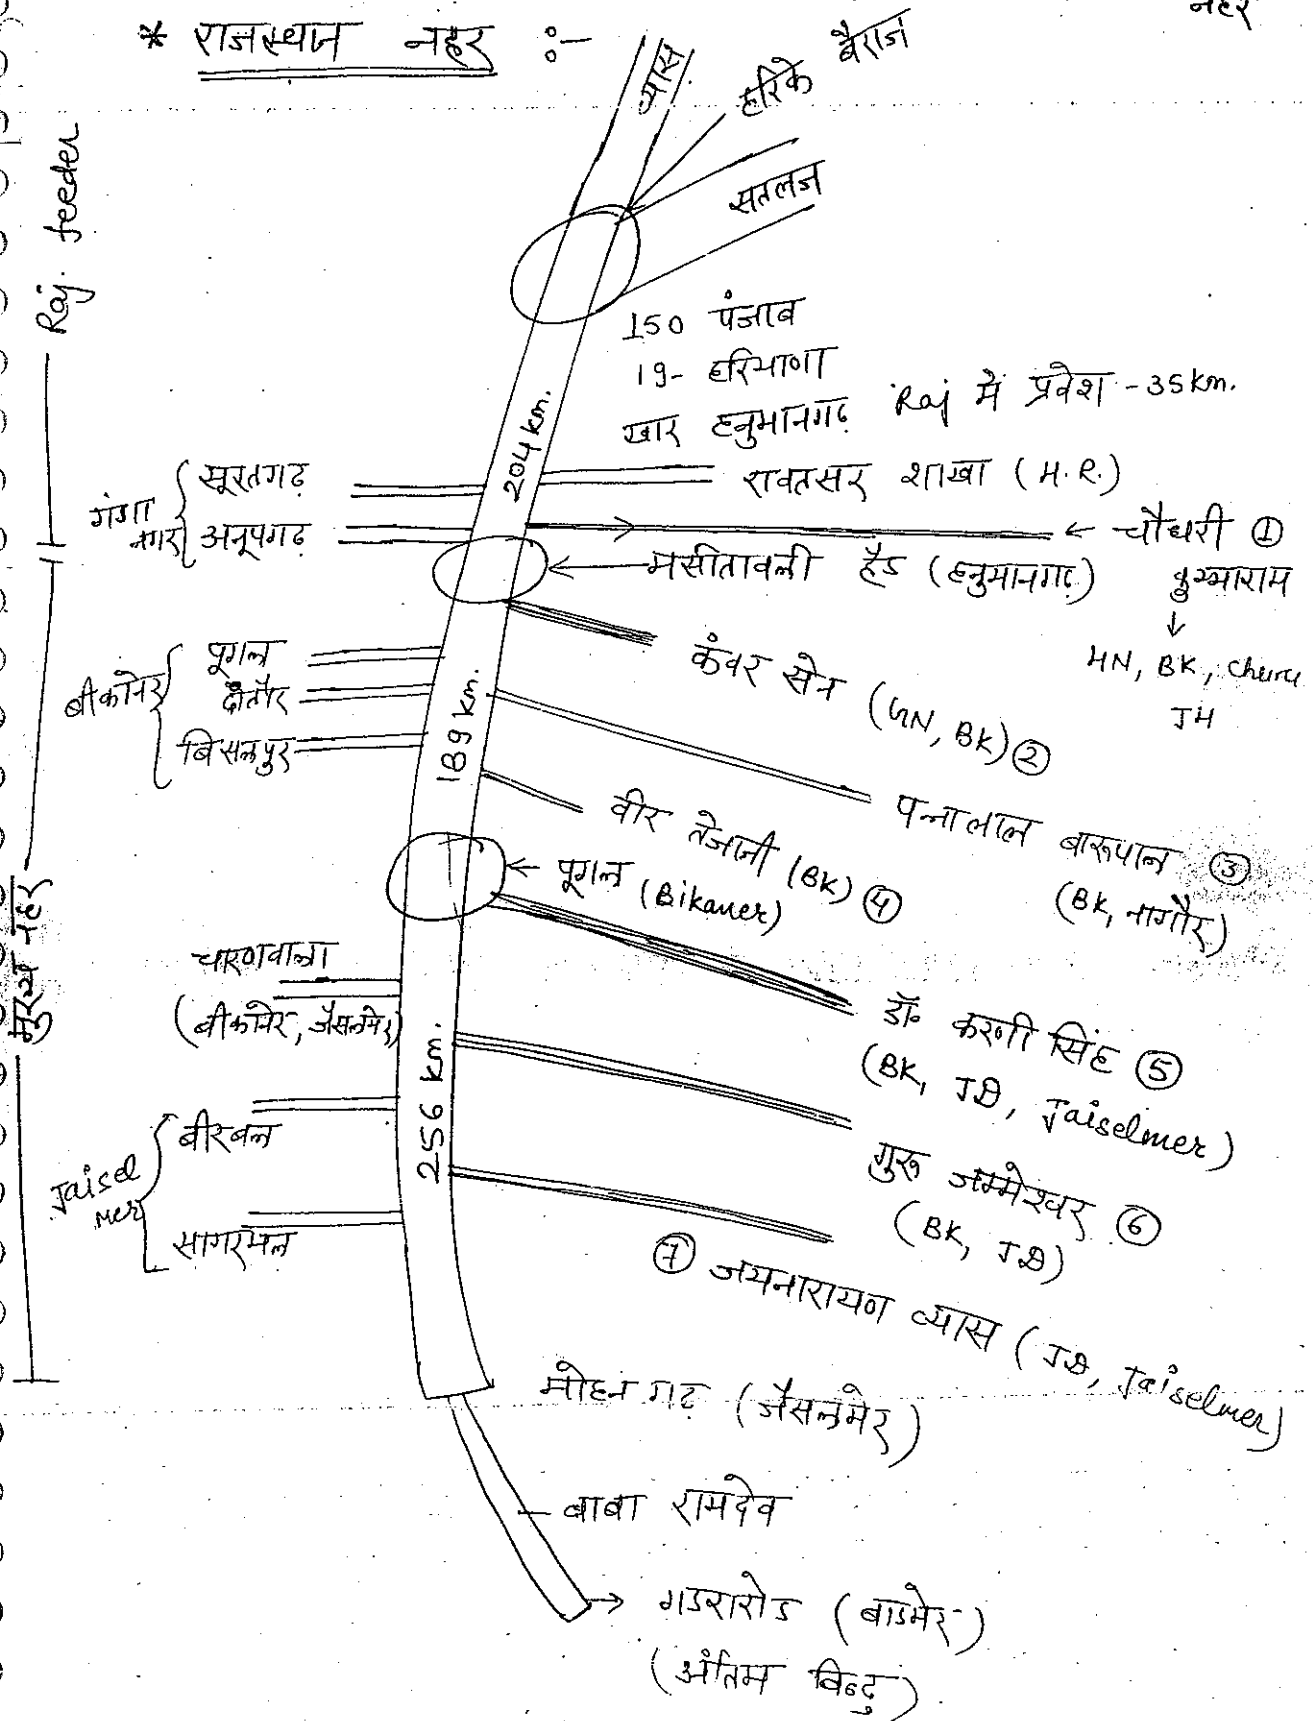 नहर
* राजस्थान नहर :-
व्यास
हरिके बैराज
सतलज
Raj. feeder
150 पंजाब
19- हरियाणा
खार हनुमानगढ़ Raj में प्रवेश - 35 km.
204 km.
गंगा नगर
सूरतगढ़
अनूपगढ़
रावतसर शाखा (H.R.)
← चौधरी ①
कुम्भाराम
↓
HN, BK, Churu
JH
← मसीतावली हैड (हनुमानगढ़)
बीकानेर
पूगल
दंतौर
बिसलपुर
189 km.
कंवर सेन (GN, BK) ②
पन्नालाल बारूपाल ③
(BK, नागौर)
वीर तेजाजी (BK) ④
← पूगल (Bikaner)
मुख्य नहर
चारणवाला
(बीकानेर, जैसलमेर)
256 km.
डॉ॰ करणी सिंह ⑤
(BK, JD, Jaiselmer)
Jaisel mer
बीरबल
सागरमल
गुरू जम्मेश्वर ⑥
(BK, JD)
⑦ जयनारायण व्यास (JD, Jaiselmer)
मोहनगढ़ (जैसलमेर)
- बाबा रामदेव
→ गडरारोड (बाडमेर)
(अंतिम बिन्दु)